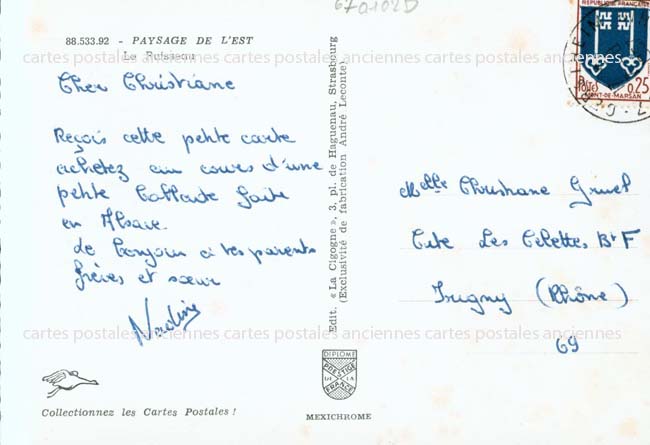 670102D
88.533.92 - PAYSAGE DE L'EST
Le Ruisseau
Cher Christiane
Reçois cette petite carte
achetez au cours d'une
petite ballade faite
en Alsace.
de bonjour à tes parents
frères et sœur
Collectionnez les Cartes Postales !
Edit. « La Cigogne », 3, pl. de Haguenau, Strasbourg
(Exclusivité de fabrication André Leconte)
DIPLOME
PRESTIGE
DE LA
FRANCE
MEXICHROME
REPUBLIQUE FRANÇAISE
POSTES
0,25
MONT-DE-MARSAN
Melle Christiane
Cité Les Célettes Bt F
Irigny (Rhône)
69
cartes postales anciennes cartes postales anciennes cartes postales anciennes
cartes postales anciennes cartes postales anciennes cartes postales anciennes